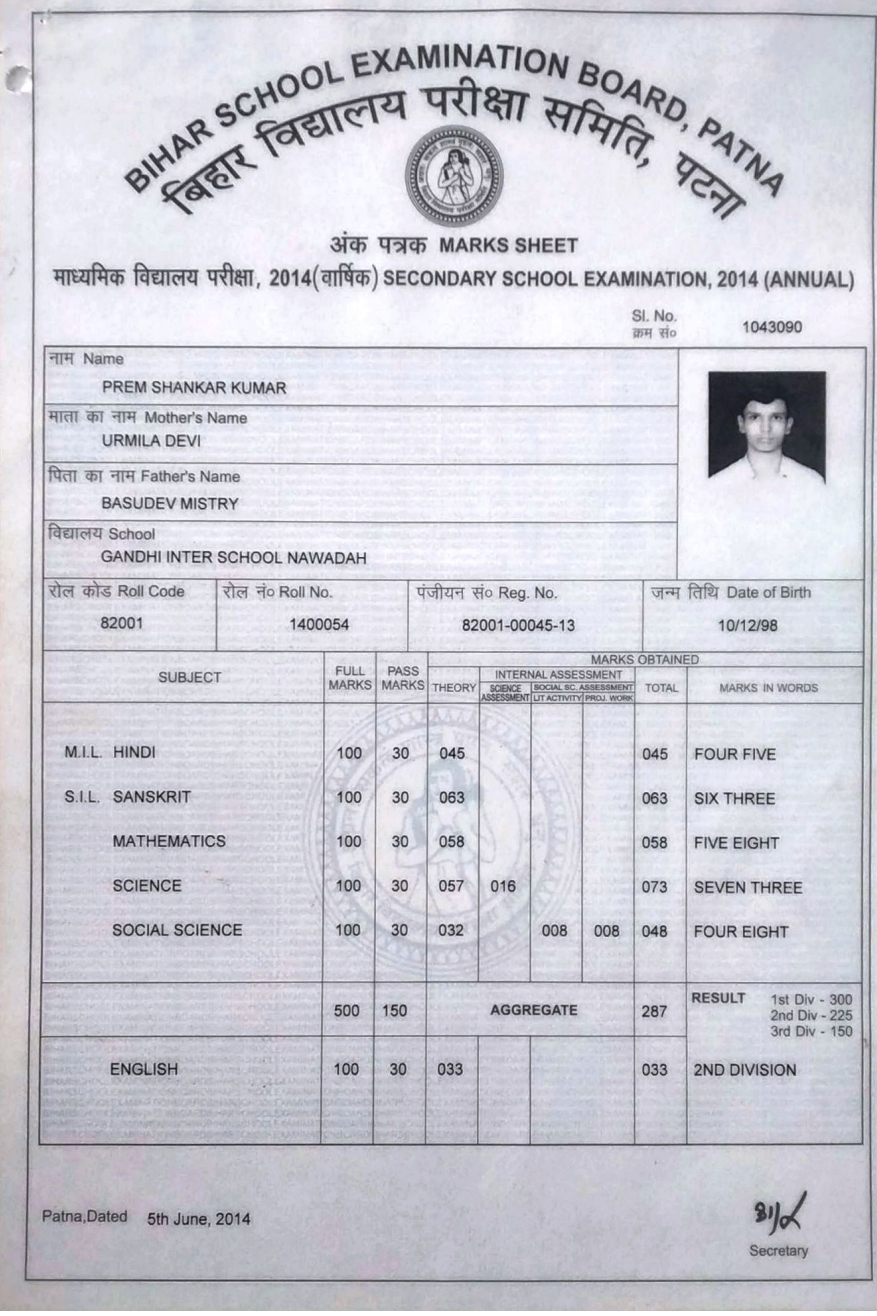 BIHAR SCHOOL EXAMINATION BOARD, PATNA
बिहार विद्यालय परीक्षा समिति, पटना
अंक पत्रक MARKS SHEET
माध्यमिक विद्यालय परीक्षा, 2014(वार्षिक) SECONDARY SCHOOL EXAMINATION, 2014 (ANNUAL)
Sl. No.
क्रम सं० 1043090
नाम Name
PREM SHANKAR KUMAR
माता का नाम Mother's Name
URMILA DEVI
पिता का नाम Father's Name
BASUDEV MISTRY
विद्यालय School
GANDHI INTER SCHOOL NAWADAH
रोल कोड Roll Code रोल नं० Roll No. पंजीयन सं० Reg. No. जन्म तिथि Date of Birth
82001 1400054 82001-00045-13 10/12/98
SUBJECT FULL MARKS PASS MARKS MARKS OBTAINED
THEORY INTERNAL ASSESSMENT TOTAL MARKS IN WORDS
SCIENCE ASSESSMENT SOCIAL SC. ASSESSMENT
LIT ACTIVITY PROJ. WORK
M.I.L. HINDI 100 30 045 045 FOUR FIVE
S.I.L. SANSKRIT 100 30 063 063 SIX THREE
MATHEMATICS 100 30 058 058 FIVE EIGHT
SCIENCE 100 30 057 016 073 SEVEN THREE
SOCIAL SCIENCE 100 30 032 008 008 048 FOUR EIGHT
500 150 AGGREGATE 287 RESULT 1st Div - 300
2nd Div - 225
3rd Div - 150
ENGLISH 100 30 033 033 2ND DIVISION
Patna,Dated 5th June, 2014
Secretary